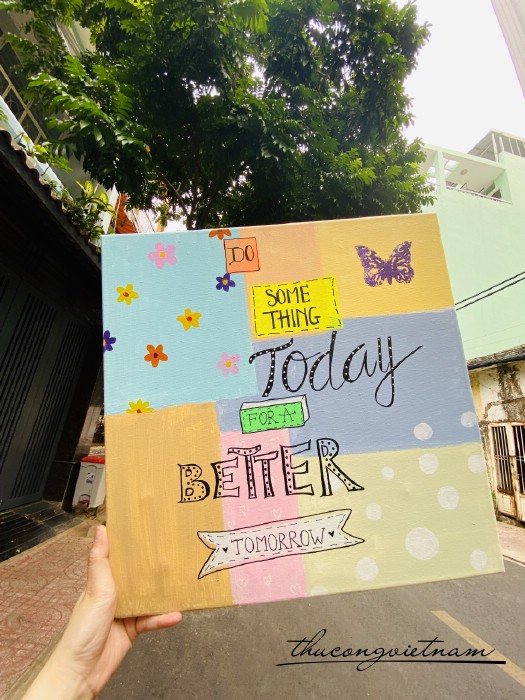 DO
SOME
THING
Today
FOR A
BETTER
TOMORROW
thucongvietnam